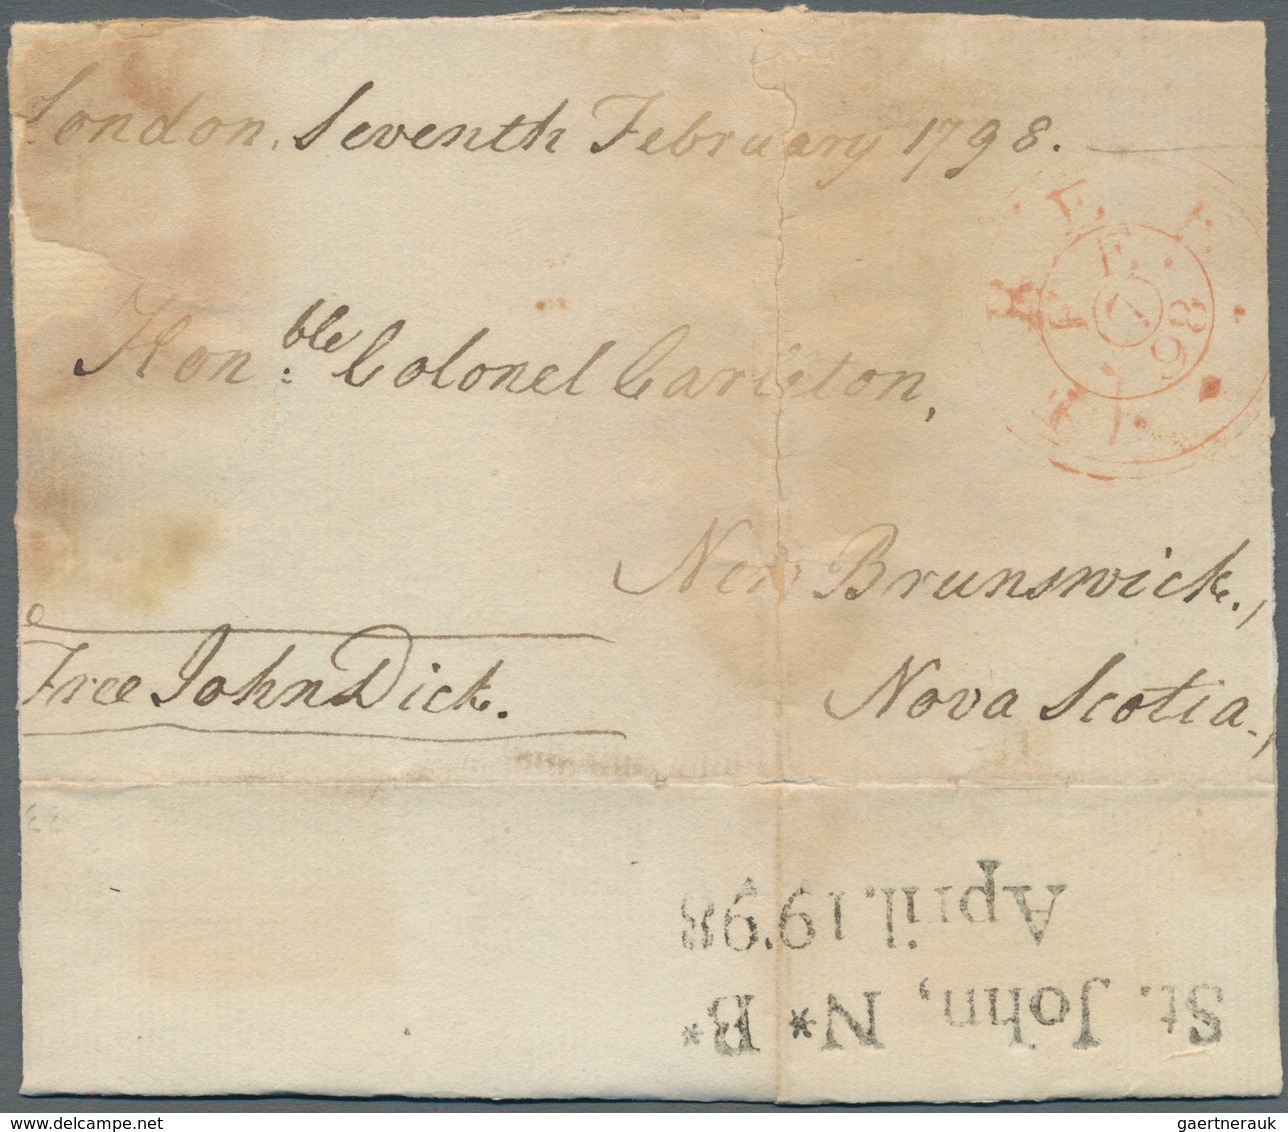 London, Seventh February 1798.
F R E E
FE 7 98
Hon.ble Colonel Carleton,
New Brunswick.,
Free John Dick.
Nova Scotia.,
33
St. John, N* B*
April.19'98
gaertnerauk